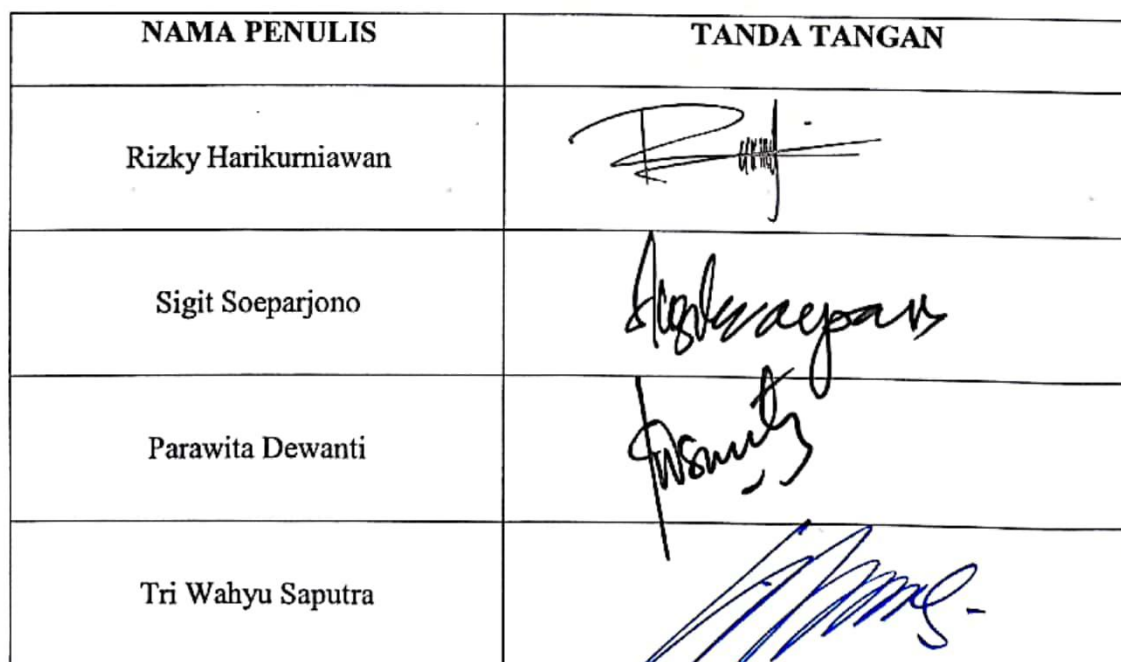 NAMA PENULIS TANDA TANGAN
Rizky Harikurniawan
Sigit Soeparjono
Parawita Dewanti
Tri Wahyu Saputra